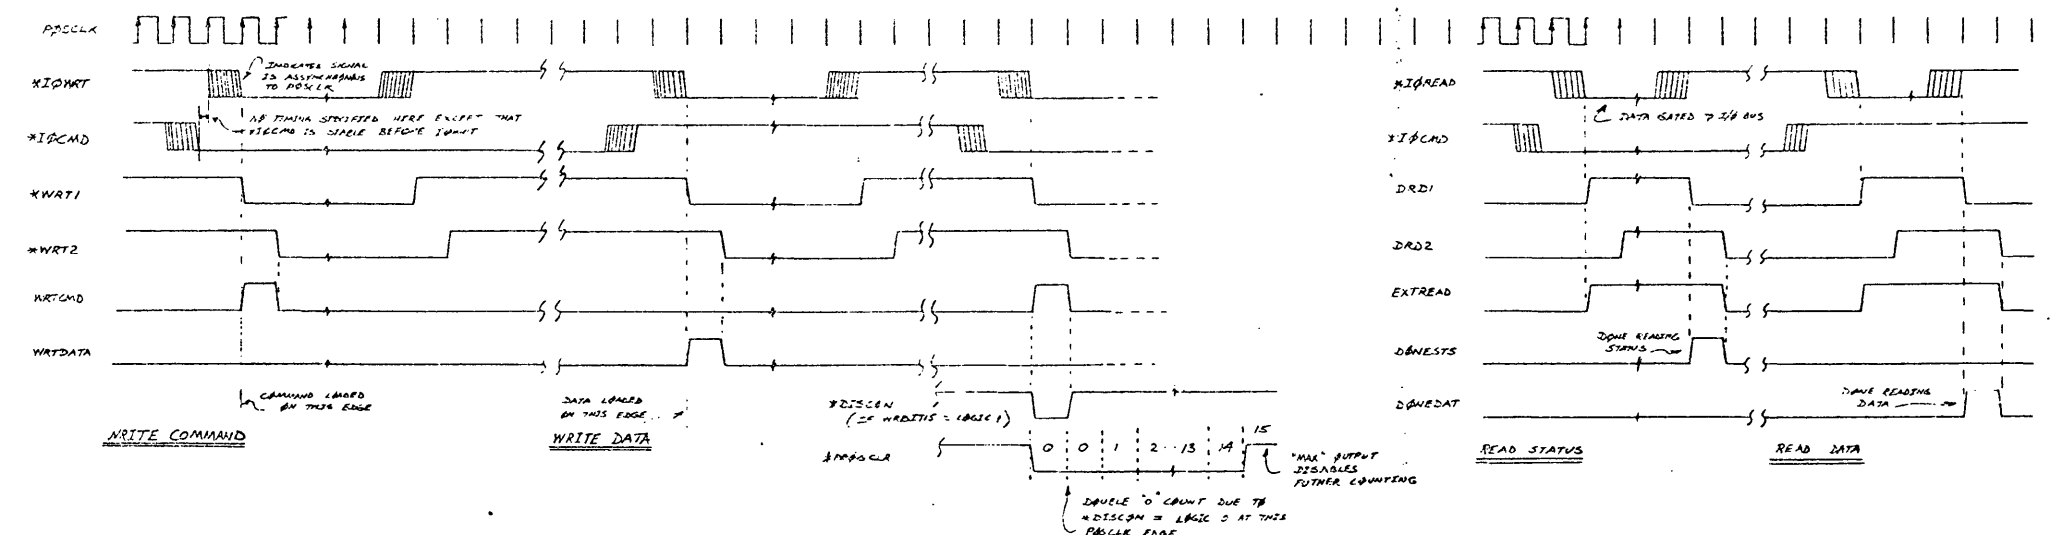 PØSCLK
*IØWRT
INDICATED SIGNAL
IS ASSYNCHRONØUS
TO PØSCLK
NØ TIMING SPECIFIED HERE EXCEPT THAT
*IØCMD IS STABLE BEFORE IØWRT
*IØCMD
*WRT1
*WRT2
WRTCMD
WRTDATA
COMMAND LOADED
ØN THIS EDGE
WRITE COMMAND
DATA LOADED
ØN THIS EDGE
WRITE DATA
*DISCØN
(IF WRDIT15 = LOGIC 1)
0 0 1 2 .. 13 14 15
"MAX" ØUTPUT
DISABLES
FUTHER CØUNTING
DØUBLE "0" CØUNT DUE TØ
*DISCØN = LØGIC 0 AT THIS
PØSCLK EDGE
*IØREAD
DATA GATED > I/Ø BUS
*IØCMD
DRD1
DRD2
EXTREAD
DØNESTS
DØNE READING
STATUS
DØNEDAT
DØNE READING
DATA
READ STATUS
READ DATA